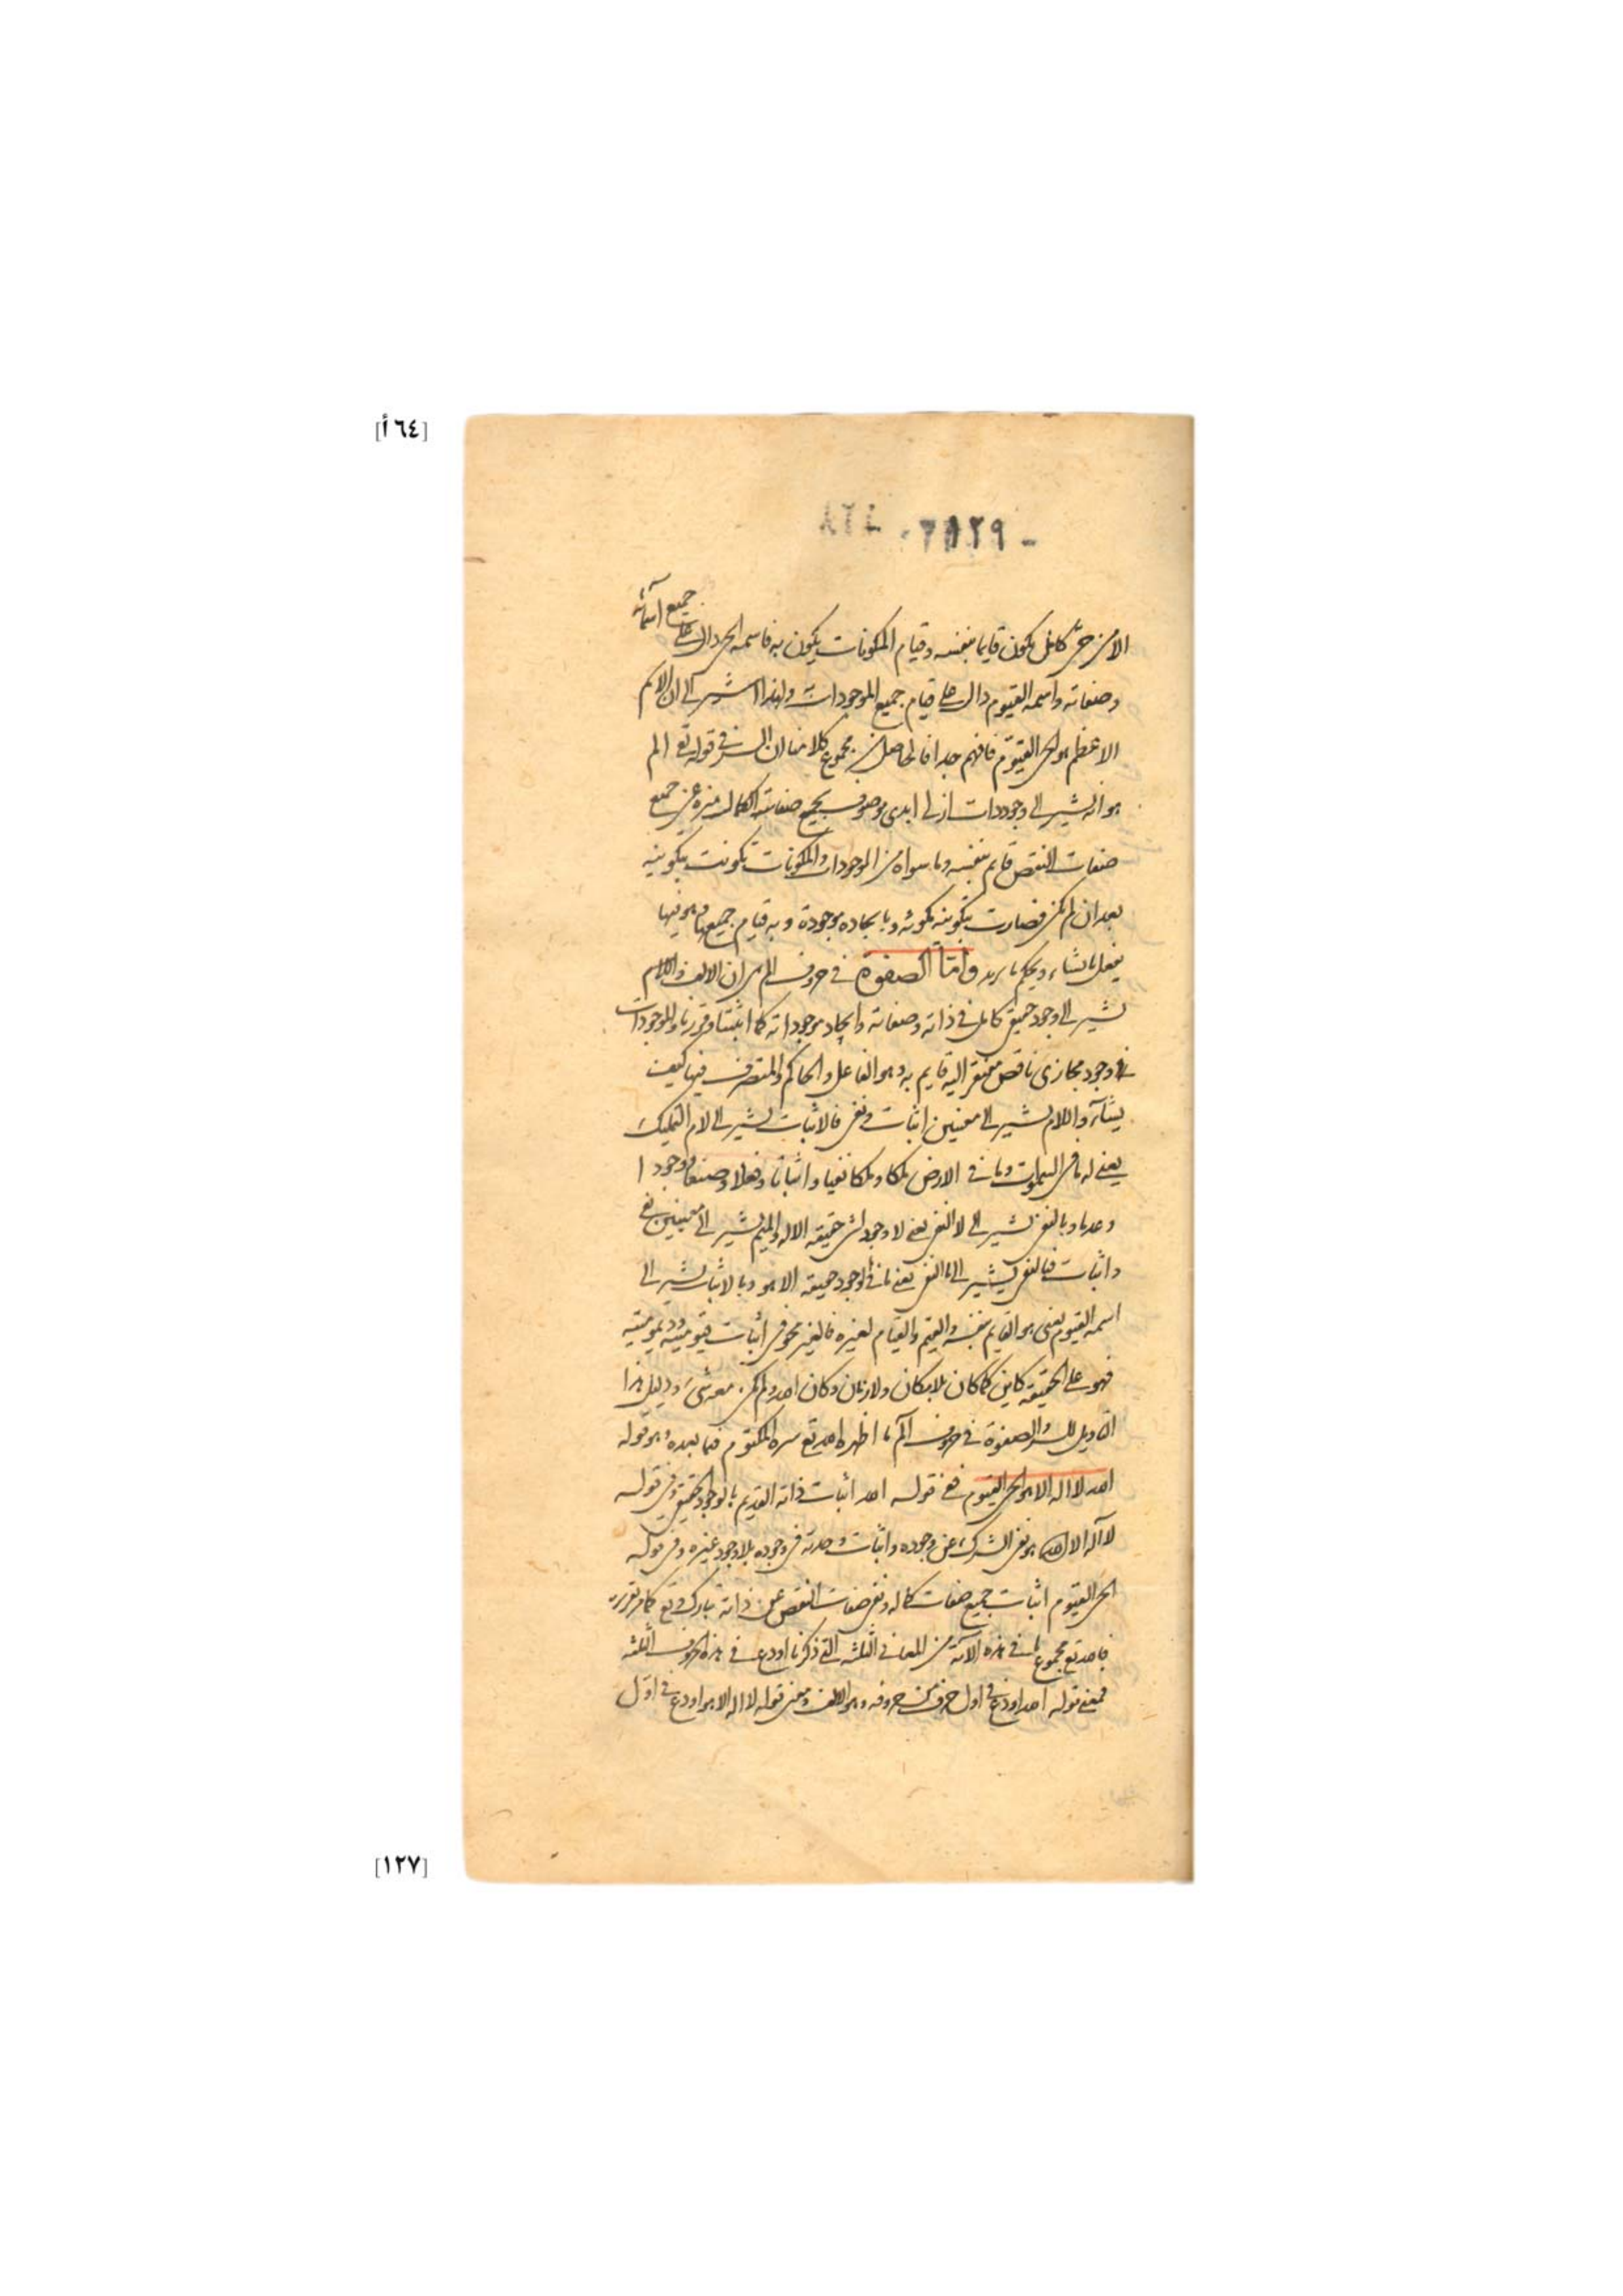 [٦٤أ]
٨٦٤ - ٣٨٢٩ -
جميع اسمائه
الا من حي كامل يكون قايما بنفسه وقيام المكونات يكون به فاسمه الحي دال على
وصفاته واسمه القيوم دال على قيام جميع الموجودات به ولهذا اشير الى ان الاسم
الاعظم هو الحي القيوم فافهم جدا فالحاصل من مجموع كلامنا ان السر في قوله تع الم
هو انه يشير الى وجود ذات ازلي ابدي موصوف بجميع صفات الكمال منزه عن جميع
صفات النقص قايم بنفسه وما سواه من الموجودات والمكونات تكونت بتكوينه
بعد ان لم يكن فصارت بتكوينه مكونة وبايجاده موجودة وبه قيام جميعها وهو فيها
يفعل ما يشاء ويحكم ما يريد واما الصفوة في حروف الم هي ان الالف واللام
يشير الى وجود حقيقي كامل في ذاته وصفاته وايجاد موجوداته كما اثبتنا وقررنا وللموجودات
وجود مجازي ناقص مفتقر اليه قايم به وهو الفاعل والحاكم والمتصرف فيها كيف
يشاء واللام يشير الى معنيين اثبات ونفي فالاثبات يشير الى لام التمليك
يعني له ما في السموات وما في الارض ملكا وملكا نفيا واثباتا وفعلا وصنعا ووجودا
وعدما وبالنفي يشير الى لا النفي يعني لا وجود لشي حقيقة الا له والميم يشير الى معنيين نفي
واثبات فبالنفي يشير الى ما النفي يعني ما في الوجود حقيقة الا هو وبالاثبات يشير الى
اسمه القيوم يعني هو القايم بنفسه والقيم والقيام لغيره فالغير محو في اثبات قيوميته وديموميته
فهو على الحقيقة كاين كما كان بلا مكان ولا زمان وكان الله ولم يكن معه شيء ودليل هذا
التاويل للسر والصفوة في حروف الم ما اظهر الله تع سره المكتوم فيما بعده وهو قوله
الله لا اله الا هو الحي القيوم ففي قوله الله اثبات ذاته القديم بالوجود الحقيقي وفي قوله
لا اله الا الله هو نفي الشرك عن وجوده واثبات وحدته في وجوده بلا وجود غيره وفي قوله
الحي القيوم اثبات جميع صفات كماله ونفي صفات النقص عن ذاته تبارك وتع كما مر تقريره
فالله تع مجموع ما في هذه الاية من المعاني الثلثة التي ذكرنا اودع في هذه الحروف الثلثة
فمعنى قوله الله اودع في اول حرف من حروفه وهو الالف ومعنى قوله لا اله الا هو اودع في اول
[١٢٧]